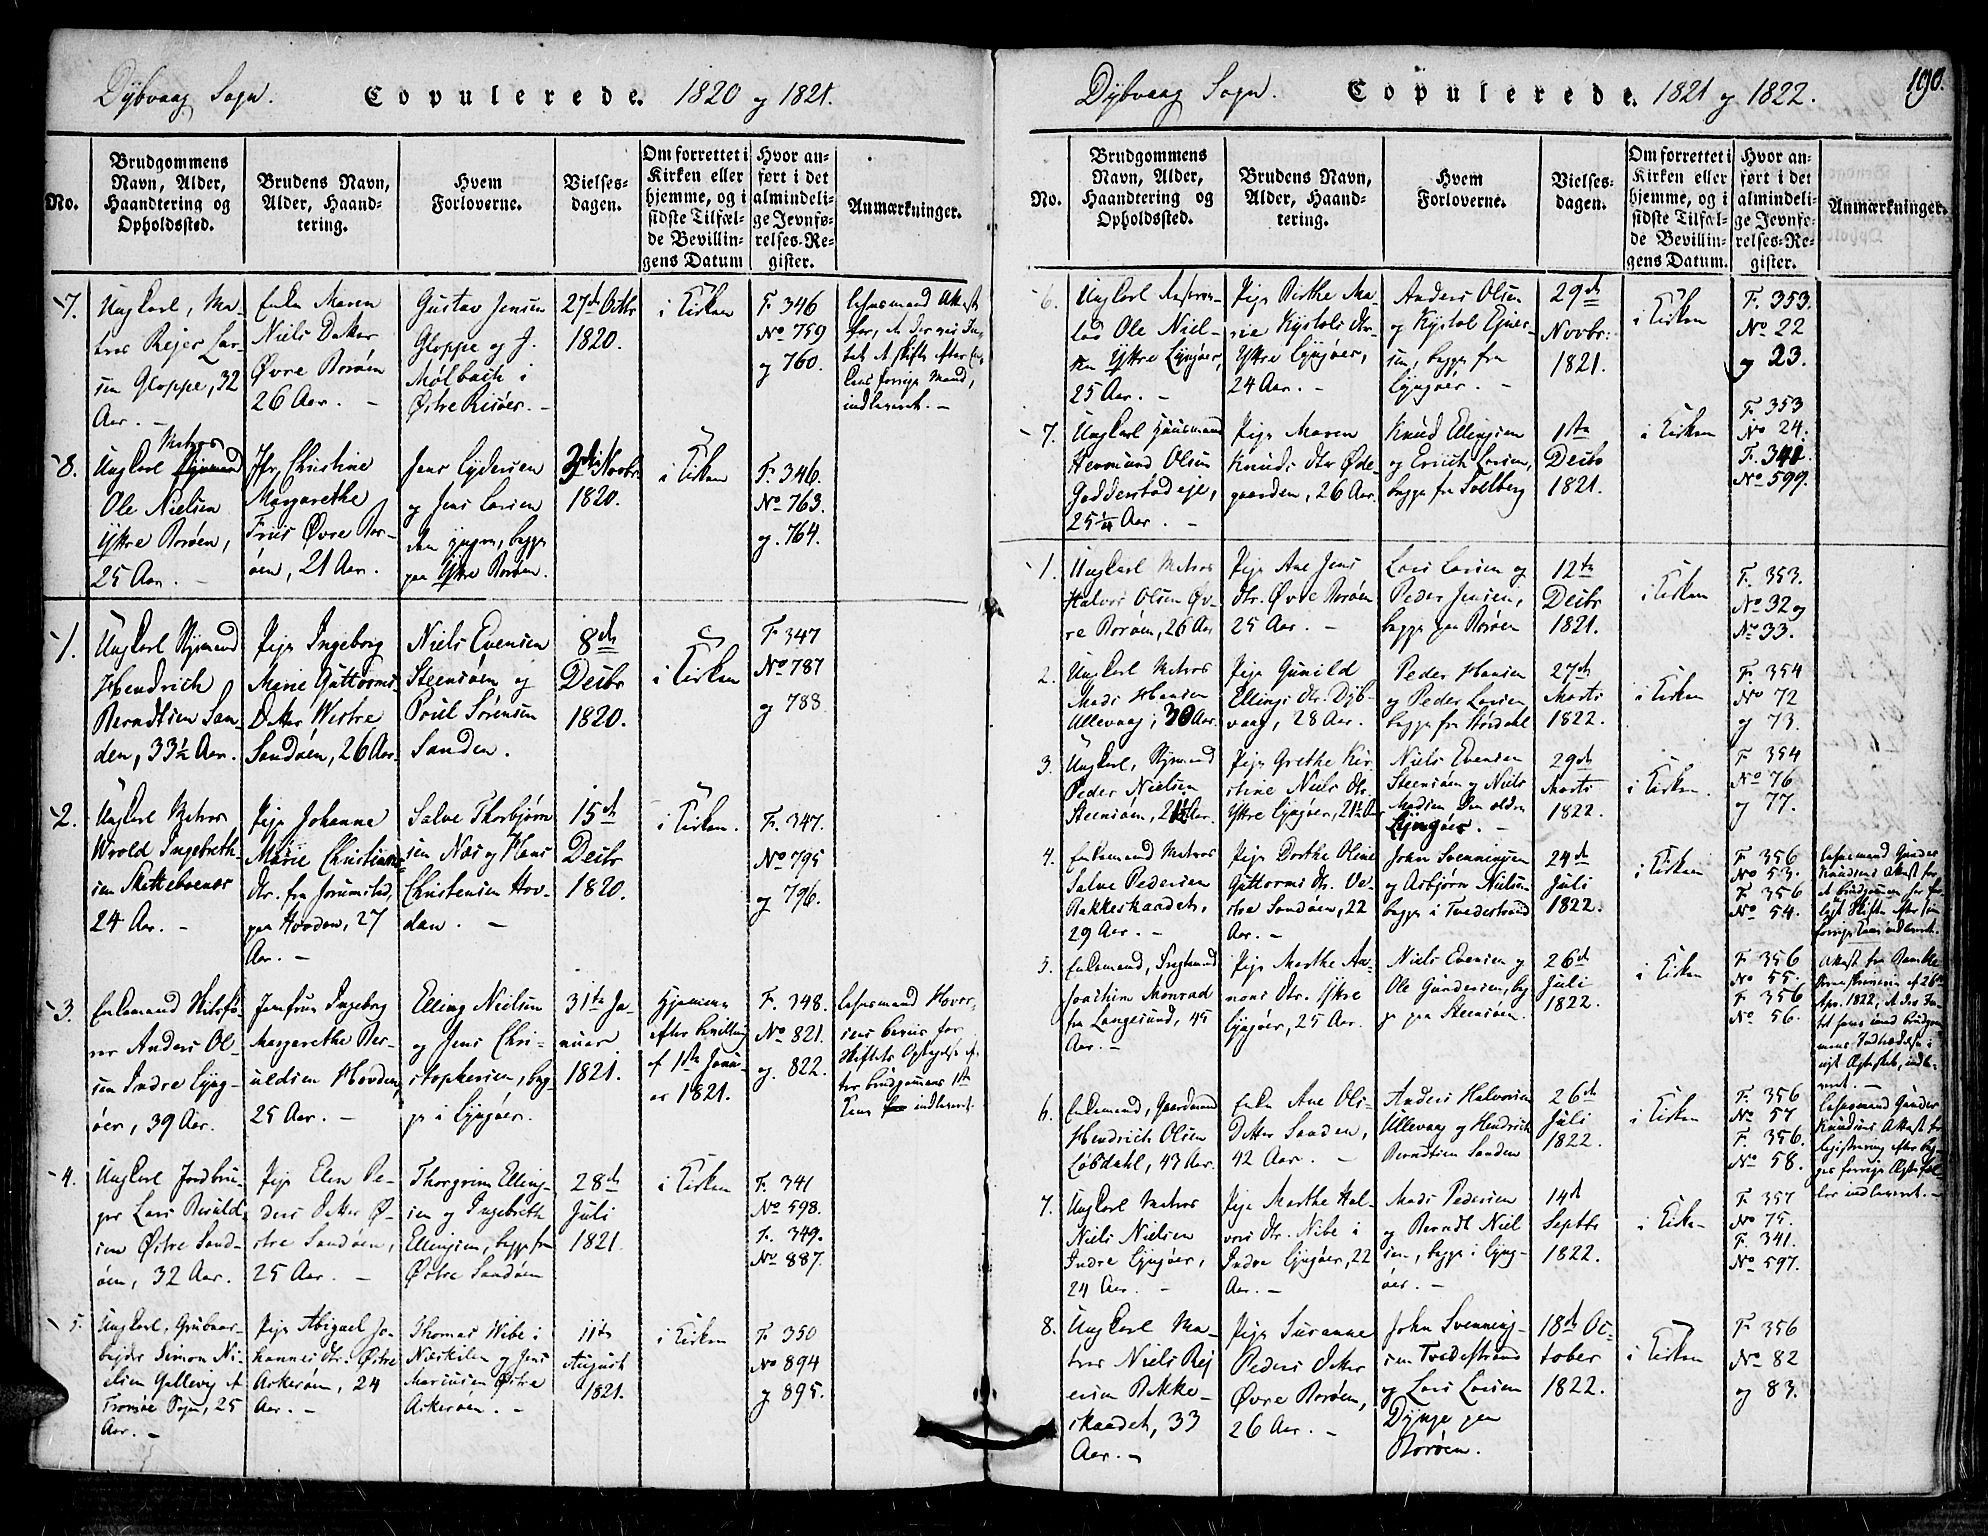 Dybvaag Sogn. Copulerede. 1820 og 1821.
No.
Brudgommens
Navn, Alder,
Haandtering og
Opholdssted.
Brudens Navn,
Alder, Haand-
tering.
Hvem
Forloverne.
Vielses-
dagen.
Om forrettet i
Kirken eller
hjemme, og i
sidste Tilfæl-
de Bevillin-
gens Datum
Hvor an-
ført i det
almindeli-
ge Jevnfø-
relses-Re-
gister.
Anmærkninger.
7.
Ungkarl, Ma-
tros Rejer Lar-
sen Gloppe, 32
Aar. –
Enke Maren
Niels Datter
Øvre Borøen
26 Aar. –
Gustav Jensen
Gloppe og J.
Mølbach i
Østre Risøer. –
27de Octbr
1820.
i Kirken
F. 346
No 759
og 760.
Lensmand
indleveret. –
8.
Matros
Ungkarl
Ole Nielsen
Yttre Borøen,
25 Aar. –
Jfr. Christine
Margarethe
Friis Øvre Bor-
øen, 21 Aar.
Jens Lydersen
og Jens Larsen
den yngre, begge
paa Yttre Borøen.
Novbr
1820.
i Kirken
F. 346.
No 763.
og. 764.
1.
Ungkarl Styrmand
Hendrich
Berndtsen San-
den, 33½ Aar.
Pige Ingeborg
Marie Guttorms-
Datter Westre
Sandøen, 26 Aar.
Niels Evensen
Steensøen og
Poul Sørensen
Sanden.
8de
Decbr
1820.
i Kirken
F. 347
No 787
og 788
2.
Ungkarl Matros
Wrold Ingebreth-
sen Skitteboenes
24 Aar. –
Pige Johanne
Marie Christians-
dtr. fra Jorumstad,
paa Hovden, 27
Aar. –
Salve Thorbjørn-
sen Næs og Hans
Christensen Hov-
den. –
15de
Decbr
1820.
i Kirken.
F. 347.
No 795
og 796.
3.
Enkemand
Anders Ol-
sen Indre Lyng-
øer, 39 Aar.
Jomfrue Ingeborg
Margarethe Ber-
Hovden,
25 Aar. –
Elling Nielsen
og Jens Chri-
stophersen, beg-
ge i Lyngøer.
31te Ja-
nuar
1821.
Hjemme
efter Bevilling
af 1ste Janu-
ar 1821.
F. 348.
No 821.
og. 822.
Lensmand
Skiftets
ter Brudgommens 1ste
Kone indleveret.
4.
Ungkarl Jordbru-
ger Lars
sen Østre Sand-
øen, 32 Aar.
Pige Elen Pe-
ders Datter Ø-
stre Sandøen,
25 Aar. –
Thorgrim Elling-
sen og Ingebreth
Ellingsen, begge fra
Østre Sandøen
28de
Juli
1821.
i Kirken
F. 341
No 598.
F. 349.
No 887.
5.
Ungkarl, Grubear-
bejder Simon Ni-
elsen Gallevig af
Tromøe Sogn, 25
Aar. –
Pige Abigael Jo-
hannes dtr. Østre
Askerøen, 24
Aar. –
Thomas Wibe i
Næskilen og Jens
Mariusen Østre
Askerøen. –
11te
August
1821.
i Kirken
F. 350
No 894
og 895.
Dybvaag Sogn. Copulerede. 1821 og 1822.
190.
No.
Brudgommens
Navn, Alder,
Haandtering og
Opholdssted.
Brudens Navn,
Alder, Haand-
tering.
Hvem
Forloverne.
Vielses-
dagen.
Om forrettet i
Kirken eller
hjemme, og i
sidste Tilfæl-
de Bevillin-
gens Datum.
Hvor an-
ført i det
almindeli-
ge Jevnfø-
relses-Re-
gister.
Anmærkninger.
6.
Ungkarl
Ole Niel-
sen Yttre Lyngøer,
25 Aar. –
Pige Berthe Ma-
ria Kystols dtr.
Yttre Lyngøer,
24 Aar. –
Anders Olsen
og Kystol Ejner-
sen, begge fra
Lyngøer. –
29de
Novbr.
1821.
i Kirken
F. 353.
No 22
og 23.
7.
Ungkarl Huusmand
Hermund Olsen
Goderstad eje,
25¼ Aar. –
Pige Maren
Knuds dtr Øde-
gaarden, 26 Aar.
Knud Ellingsen
og Erich Larsen,
begge fra Solberg
1ste
Decbr
1821.
i Kirken
F. 353
No 24.
F. 341.
No 599.
1.
Ungkarl Matros
Halvor Olsen Øv-
re Borøen, 26 Aar
Pige Ane Jens
dtr. Øvre Borøen
25 Aar. –
Lars Larsen og
Peder Jensen,
begge paa Borøen
12te
Decbr
1821.
i Kirken
F. 353.
No 32 og
No 33.
2.
Ungkarl Matros
Mads Hansen
Ullevaag, 30 Aar.
Pige Gunild
Ellings dtr. Dyb-
vaag, 28 Aar.
Peder Hansen
og Peder Larsen
begge fra
27de
Marts
1822.
i Kirken
F. 354
No 72
og 73.
3.
Ungkarl, Styrmand
Peder Nielsen
Steensøen, Aar.
Pige Grethe Kir-
stine Niels dtr.
Yttre Lyngøer, 21½ Aar
Niels Evensen
Steensøen og Niels
Madsen den ældre
Lyngøer. –
29de
Marts
1822.
i Kirken.
F. 354
No 76
og 77.
4.
Enkemand Matros
Salve Pedersen
Bakkeskaadet,
29 Aar. –
Pige Dorthe Oline
Guttorms dtr. Ve-
stre Sandøen, 22
Aar. –
John Svenningsen
og Asbjørn Nielsen
begge i Tvedestrand
24de
Juli
1822.
i Kirken
F. 356
No 53.
F. 356
No 54.
Lensmand Gunder
Knudsens Attest for
at Brudgommen har for-
indleveret.
5.
Enkemand,
Joachim Monrad
fra Langesund, 45
Aar. –
Pige Marthe Aa-
nons dtr. Yttre
Lyngøer, 25 Aar.
Niels Evensen og
Ole Gundersen, beg-
ge paa Steensøen.
26de
Juli
1822.
i Kirken
F. 356
No 55.
F. 356
No 56.
Attest fra Bamble
af 26de
Apr. 1822, at der
6.
Enkemand, Gaardmand
Hendrich Olsen
Løbdahl, 43 Aar.
Enke Ane Ols-
Datter Sanden,
42 Aar. –
Anders Halvorsen
Ullevaag og Hendrich
Berndtsen Sanden
26de
Juli
1822.
i Kirken
F. 356
No 57
F. 356.
No 58.
Lensmand Gunder
Knudsens Attest
indleveret. –
7.
Ungkarl Matros
Niels Nielsen
Indre Lyngøer,
24 Aar. –
Pige Marthe Hal-
vors dtr. Nibe i
Indre Lyngøer, 22
Aar. –
Mads Pedersen
og Berndt Niel-
sen, begge i Lyng-
øer. –
14de
Septbr
1822.
i Kirken
F. 357
No 75.
F. 341.
No 597.
8.
Ungkarl Ma-
tros Niels Rej-
ersen Bakke-
skaadet, 33
Aar. –
Pige Susanne
Peders Datter
Øvre Borøen,
26 Aar. –
John Svenning-
sen Tvedestrand
og Lars Larsen
Dynge paa
Borøen.
18de Oc-
tober
1822.
i Kirken
F. 356
No 82
og 83.